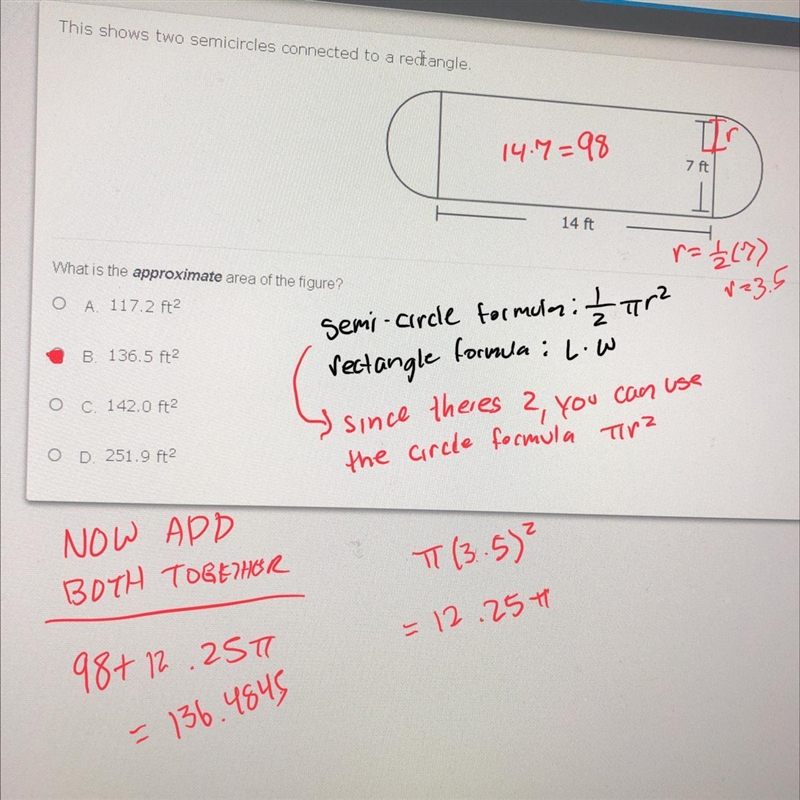 This shows two semicircles connected to a rectangle.
14.7=98
r
7 ft
14 ft
r= 1/2(7)
r=3.5
What is the approximate area of the figure?
A. 117.2 ft²
B. 136.5 ft²
C. 142.0 ft²
D. 251.9 ft²
semi-circle formula: 1/2 πr²
rectangle formula: L.W
since theres 2, you can use
the circle formula πr²
NOW ADD
BOTH TOGETHER
98+12.25π
=136.4845
π(3.5)²
=12.25π